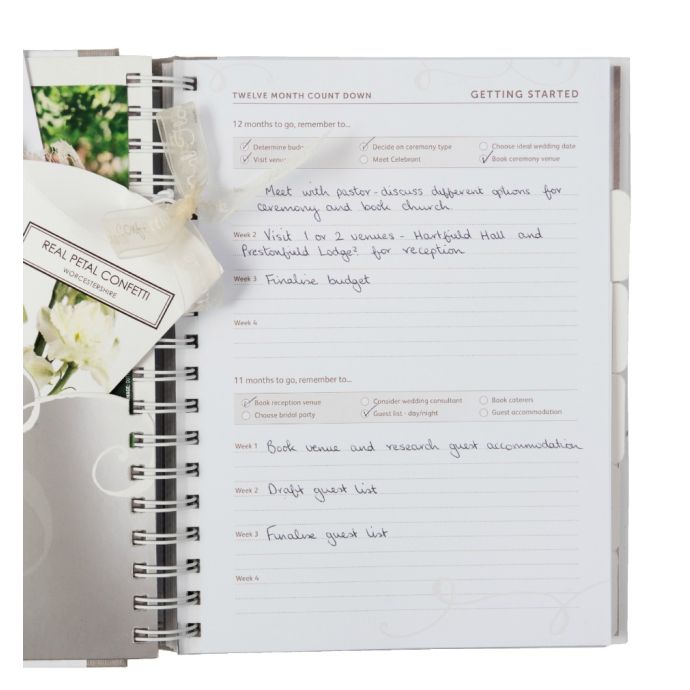 REAL PETAL CONFETTI
WORCESTERSHIRE
TWELVE MONTH COUNT DOWN GETTING STARTED
12 months to go, remember to...
Determine Decide on ceremony type Choose ideal wedding date
Visit Meet Celebrant Book ceremony venue
Meet with pastor - discuss different options for
ceremony and book church.
Week 2 Visit 1 or 2 venues - Hartfield Hall and
Prestonfield Lodge? for reception
Week 3 Finalise budget
Week 4
11 months to go, remember to...
Book reception venue Consider wedding consultant Book caterers
Choose bridal party Guest list - day/night Guest accommodation
Week 1 Book venue and research guest accommodation
Week 2 Draft guest list
Week 3 Finalise guest list
Week 4